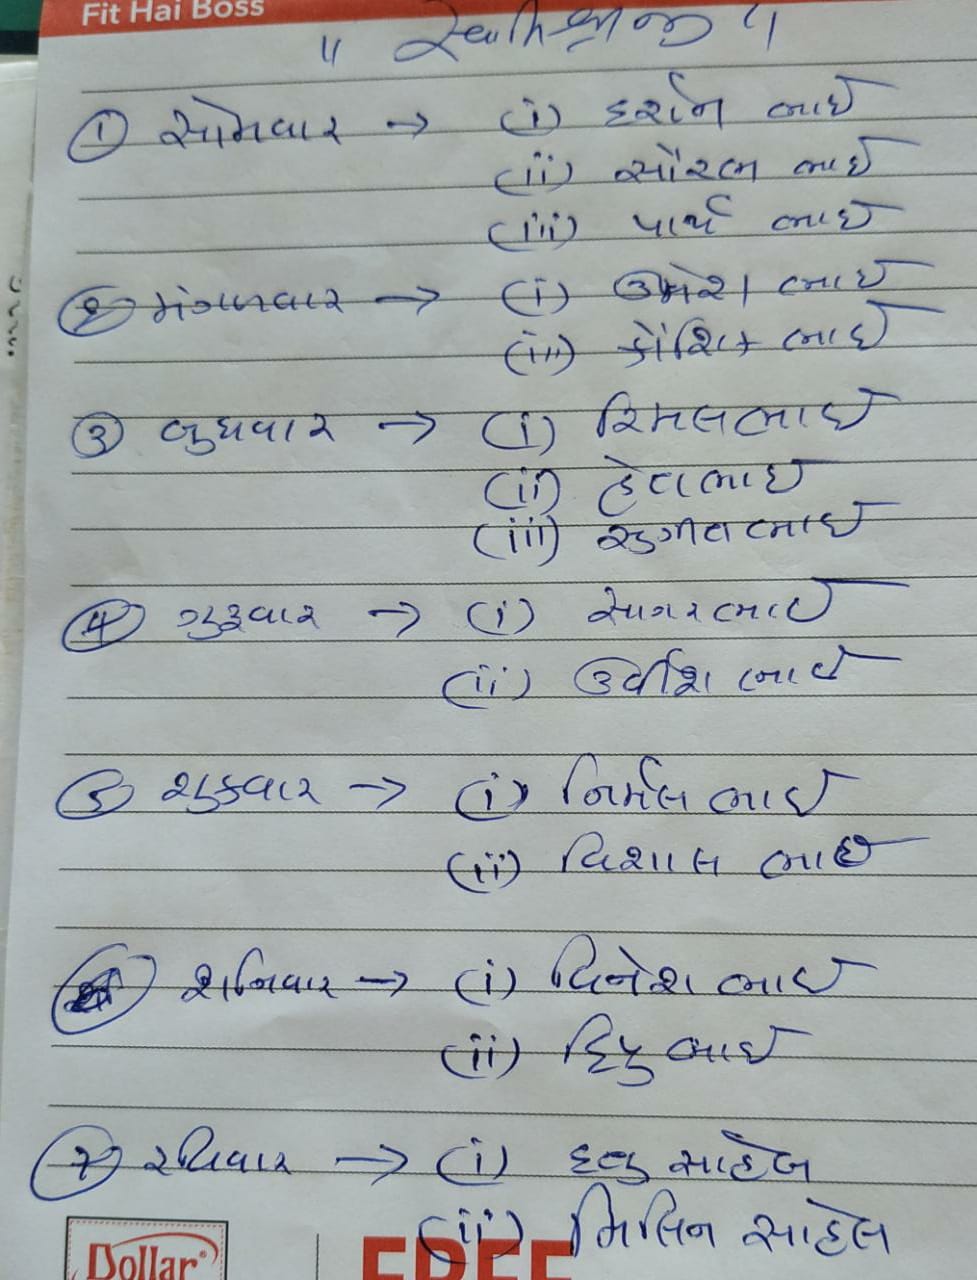 Fit Hai Boss
"
① સોમવાર → (i) દર્શન ભાઈ
(ii) સૌરભ ભાઈ
(iii) પાર્થ ભાઈ
② મંગળવાર → (i) ઉમેશ ભાઈ
(ii) કૌશિક ભાઈ
③ બુધવાર → (i) રિમલભાઈ
(ii) હેતભાઈ
(iii) સુગીતભાઈ
④ ગુરૂવાર → (i) સાગરભાઈ
(ii) ઉર્વીશ ભાઈ
⑤ શુક્રવાર → (i) નિર્મલ ભાઈ
(ii) વિશાલ ભાઈ
શનિવાર → (i) વિનેશ ભાઈ
(ii) ભાઈ
⑦ રવિવાર → (i) સાહેબ
(ii) મિલિન સાહેબ
Dollar
FREE